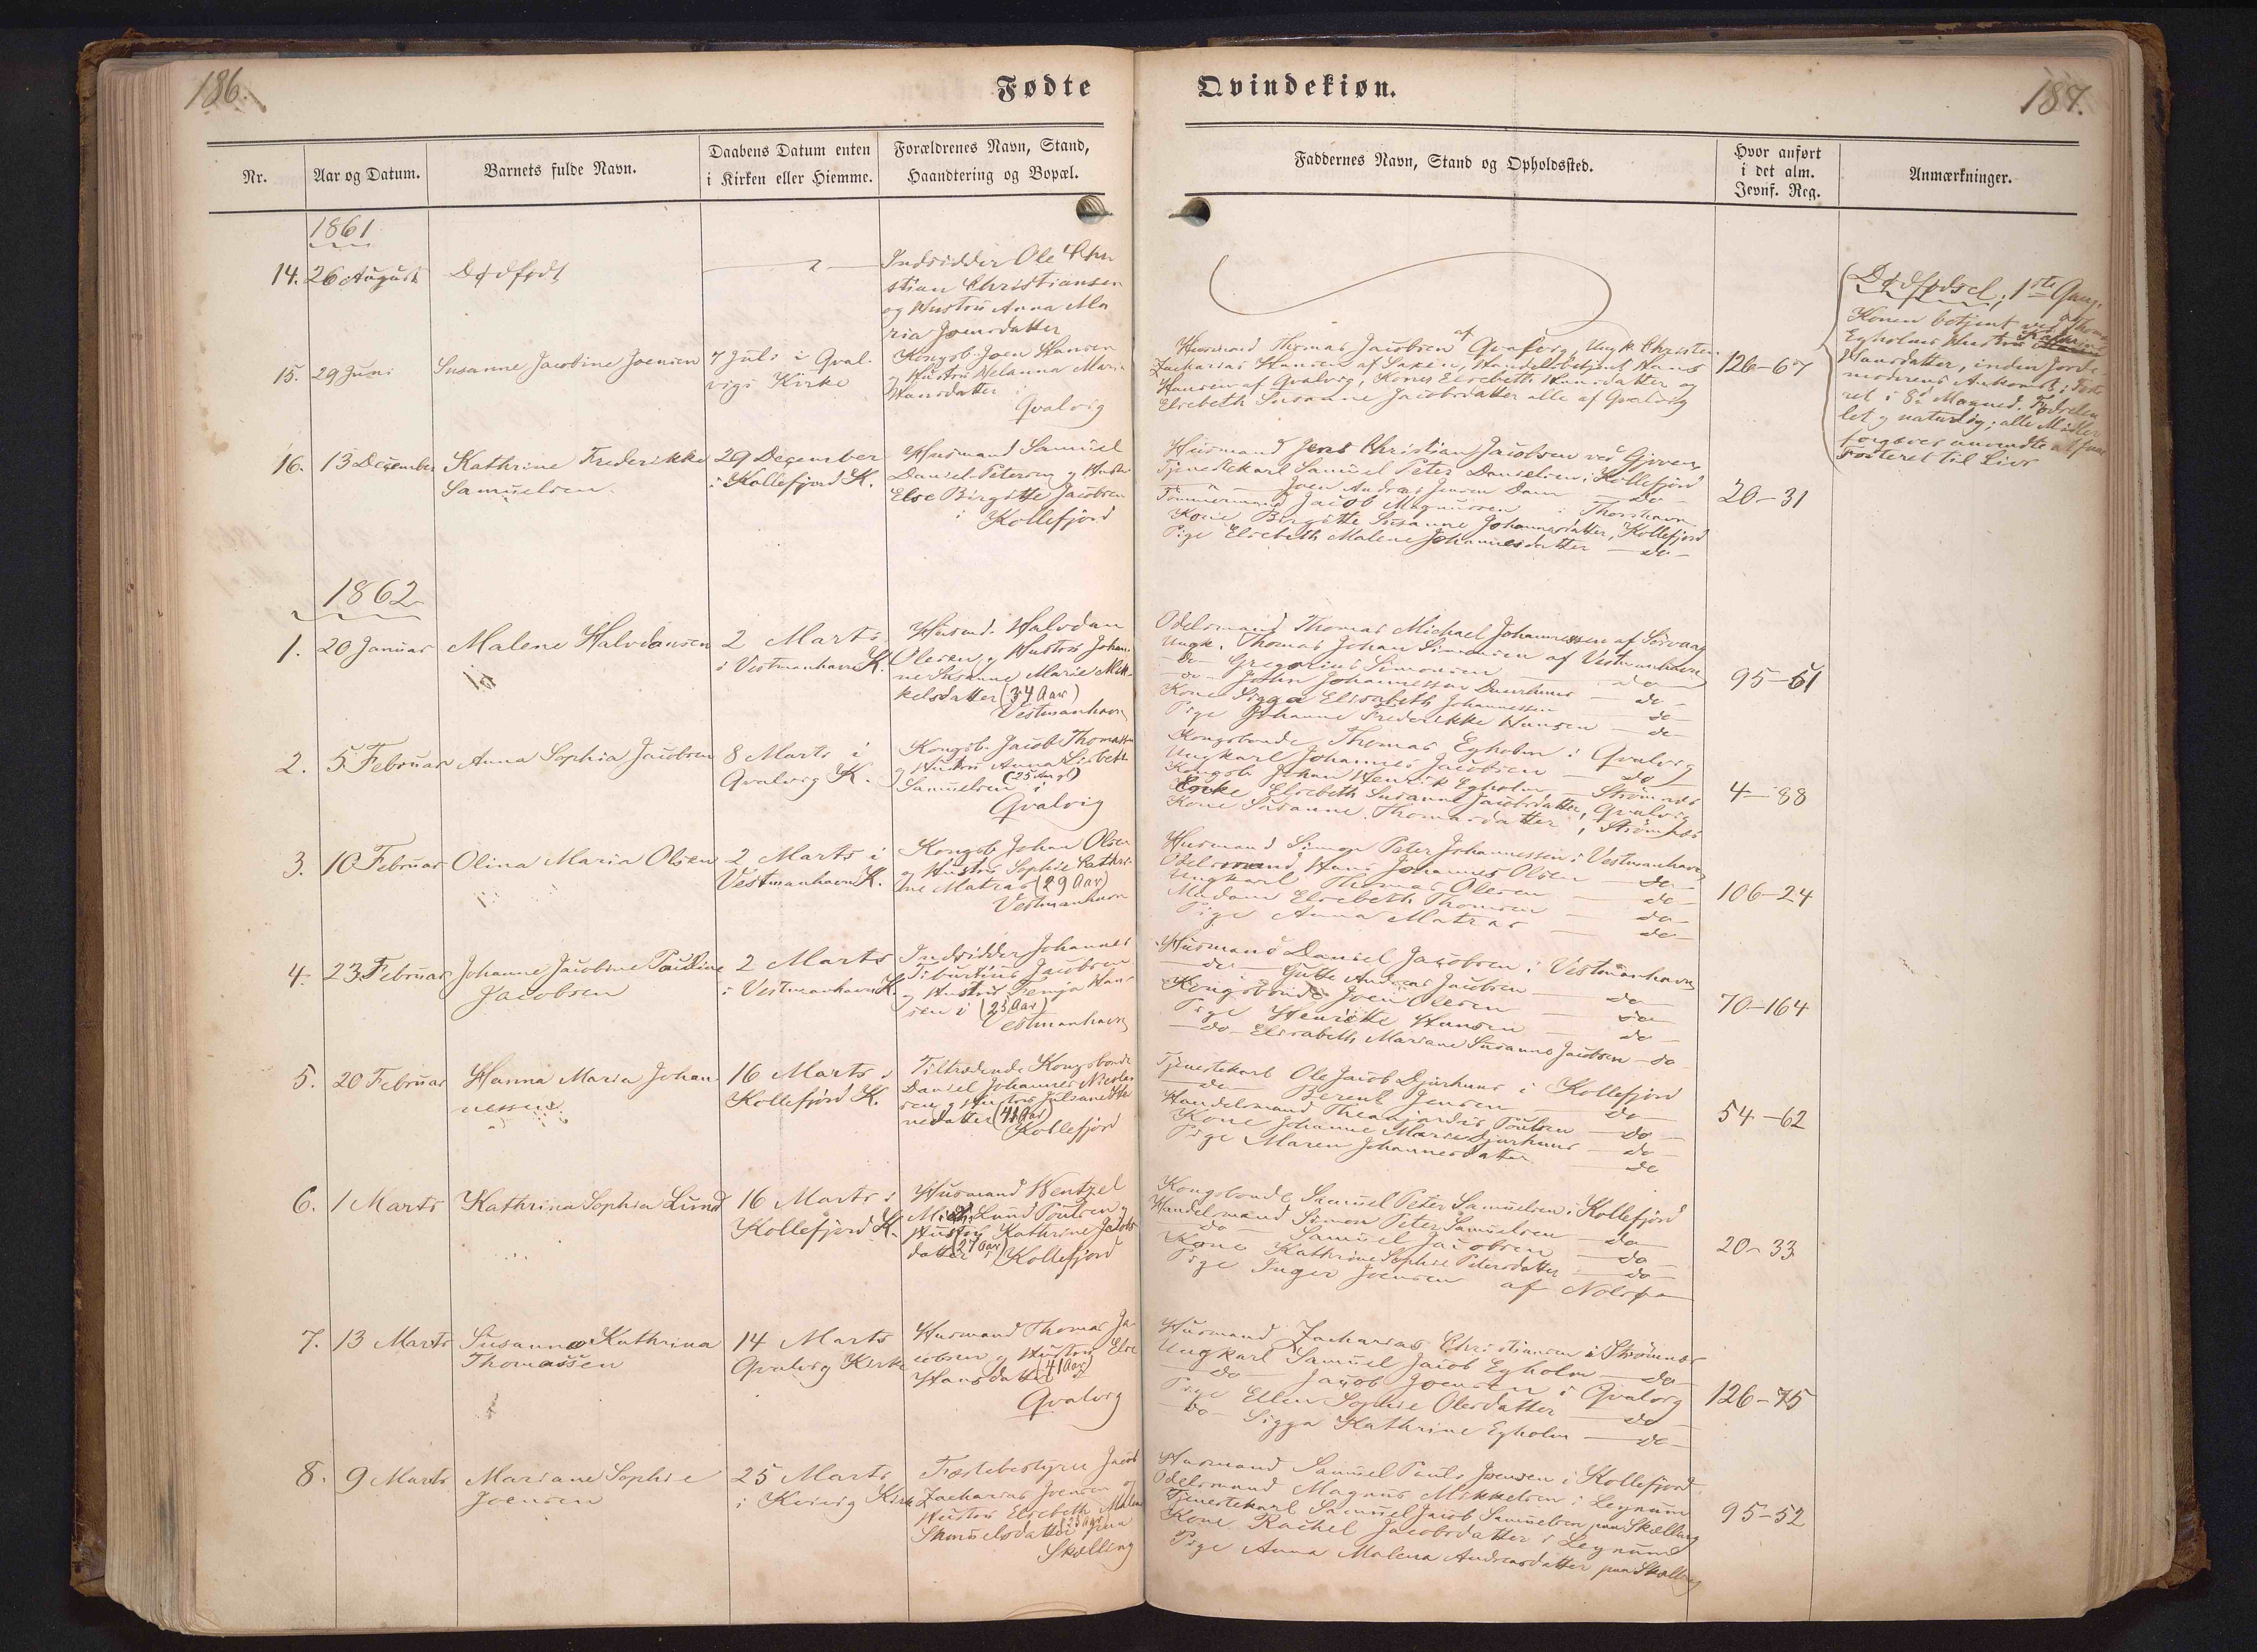 186.
Fødte
Nr.
Aar og Datum.
Barnets fulde Navn.
Daabens Datum enten
i Kirken eller Hiemme.
Forældrenes Navn, Stand,
Haandtering og Bopæl.
1861
14. 26 August Dødfødt
Indsidder Ole Chri
stian Christiansen
og Hustru Anna Ma
ria Joensdatter
15. 29 Juni Susanne Jacobine Joensen 7 Juli i Qval-
vigs Kirke
Kongsb. Joen Hansen
og Hustru Melanna Maria
Hansdatter i
Qvalvig
16. 13 December Kathrine Frederikke
Samuelsen
29 December
i Kollefjord K.
Husmand Samuel
Daniel Petersen og Hustru
Else Birgitte Jacobsen
i Kollefjord
1862
1. 20 Januar Malene Halvdansen 2 Marts
i Vestmanhavn K.
Husmd. Halvdan
Olesen og Hustru Johan-
ne Susanne Marie Mik-
kelsdatter (34 Aar)
Vestmanhavn
2. 5 Februar Anna Sophia Jacobsen 8 Marts i
Qvalvig K.
Kongsb. Jacob Thomassen
og Hustru Anna Lisbeth
Samuelsen (25 Aar) i
Qvalvig
3. 10 Februar Olina Maria Olsen 2 Marts i
Vestmanhavn K.
Kongsb. Johan Olsen
og Hustru Sophie Cathri-
ne Matras (29 Aar)
Vestmanhavn
4. 23 Februar Johanne Jacobine Pauline
Jacobsen
2 Marts
i Vestmanhavn K.
Indsidder Johannes
Tiburtius Jacobsen
og Hustru Femja Han-
sen i (25 Aar)
Vestmanhavn
5. 20 Februar Hanna Maria Johan-
nessen
16 Marts i
Kollefjord K.
Tiltrædende Kongsbonde
Daniel Johannes Nicolas
sen og Hustru
(41 Aar)
Kollefjord
6. 1 Marts Kathrina Sophia Lund 16 Marts i
Kollefjord K.
Husmand Wentzel
Mich. Lund Poulsen og
Hustru Kathrine Jacobs
datter (27 Aar) i Kollefjord
7. 13 Marts Susanna Kathrina
Thomassen
14 Marts
Qvalvig Kirke
Husmand Thomas Ja-
cobsen og Hustru Else
Hansdatter (41 Aar)
Qvalvig
8. 9 Marts Mariane Sophie
Joensen
25 Marts
i Kvivig Kirke
Fæstebestyrer Jacob
Zacharias Joensen og
Hustru Elsebeth Malene
Samuelsdatter (25 Aar) paa
Skælling
187.
Qvindekiøn.
Faddernes Navn, Stand og Opholdssted.
Hvor anført
i det alm.
Jevnf. Reg.
Anmærkninger.
Dødfødsel, 1ste Gang.
Konen betjent ved Thomas
Egholms Hustru Kathrine
Hansdatter, inden Jorde-
moderens Ankomst; Foste
ret i 8de Maaned. Fødselen
let og naturlig; alle Midler
forgæves anvendte at faae
Fosteret til Live
Husmand Thomas Jacobsen af Qvalvig, Ungk. Christen
Zacharias Hansen af Saxen, Handelsbetjent Hans
Hansen af Qvalvig, Koner Elsebeth Hansdatter og
Elsebeth Susanne Jacobsdatter alle af Qvalvig
126-67
Husmand Jens Christian Jacobsen ved Gjoven,
Tjenestekarl Samuel Peter Danielsen, Kollefjord
Joen Andreas Jensen Dam - do -
Tømmermand Jacob Magnussen i Thorshavn
Kone Birgitte Susanne Johannesdatter, Kollefjord
Pige Elsebeth Malene Johannesdatter - do -
20-31
Odelsmand Thomas Michael Johannessen af Sørvaag
Ungk. Thomas Johan Simonsen af Vestmanhavn
- do - Gregorius Simonsen - do -
- do - John Johannessen Duurhuus - do -
Kone Sigga Elisabeth Johannessen - do -
Pige Johanne Frederikke Hansen - do -
95-61
Kongsbonde Thomas Egholm i Qvalvig
Ungkarl Johannes Jacobsen - do -
Kongsb. Johan Henrik Egholm - Strømnæs
Enke Elsebeth Susanne Jacobsdatter, Qvalvig
Kone Susanne Thomasdatter i Strømnæs
4-88
Husmand Simon Peter Johannessen i Vestmanhavn
Odelsmand Hans Johannes Olsen - do -
Ungkarl Thomas Olesen - do -
Madam Elsebeth Thomsen - do -
Pige Anna Matras - do -
106-24
Husmand Daniel Jacobsen i Vestmanhavn
- do - Gutte Andreas Jacobsen - do -
Kongsbonde Joen Olesen - do -
Pige Henriette Hansen - do -
- do - Elisabeth Mariane Susanne Jacobsen - do -
70-164
Tjenestekarl Ole Jacob Djurhuus i Kollefjord
- do - Berent Jensen - do -
Handelsmand Poulsen - do -
Kone Johanne Marie Djurhuus - do -
Pige Maren Johannesdatter - do
54-62
Kongsbonde Samuel Peter Samuelsen i Kollefjord
Handelsmand Simon Peter Samuelsen - do -
- do - Samuel Jacobsen - do -
Kone Kathrine Sophie Petersdatter - do -
Pige Inger Joensen af Nolsø
20-33
Husmand Zacharias Christiansen i Strømnæs
Ungkarl Samuel Jacob Egholm - do -
- do - Jacob Joensen i Qvalvig
Pige Ellen Sophie Olesdatter - do -
- do - Sigga Kathrine Egholm - do -
126-75
Husmand Samuel Pauls Joensen i Kollefjord
Odelsmand Magnus Mikkelsen i Leynum
Tjenestekarl Samuel Jacob Samuelsen paa Skælling
Kone Rachel Jacobsdatter i Leynum
Pige Anna Malena Andreasdatter paa Skælling
95-52